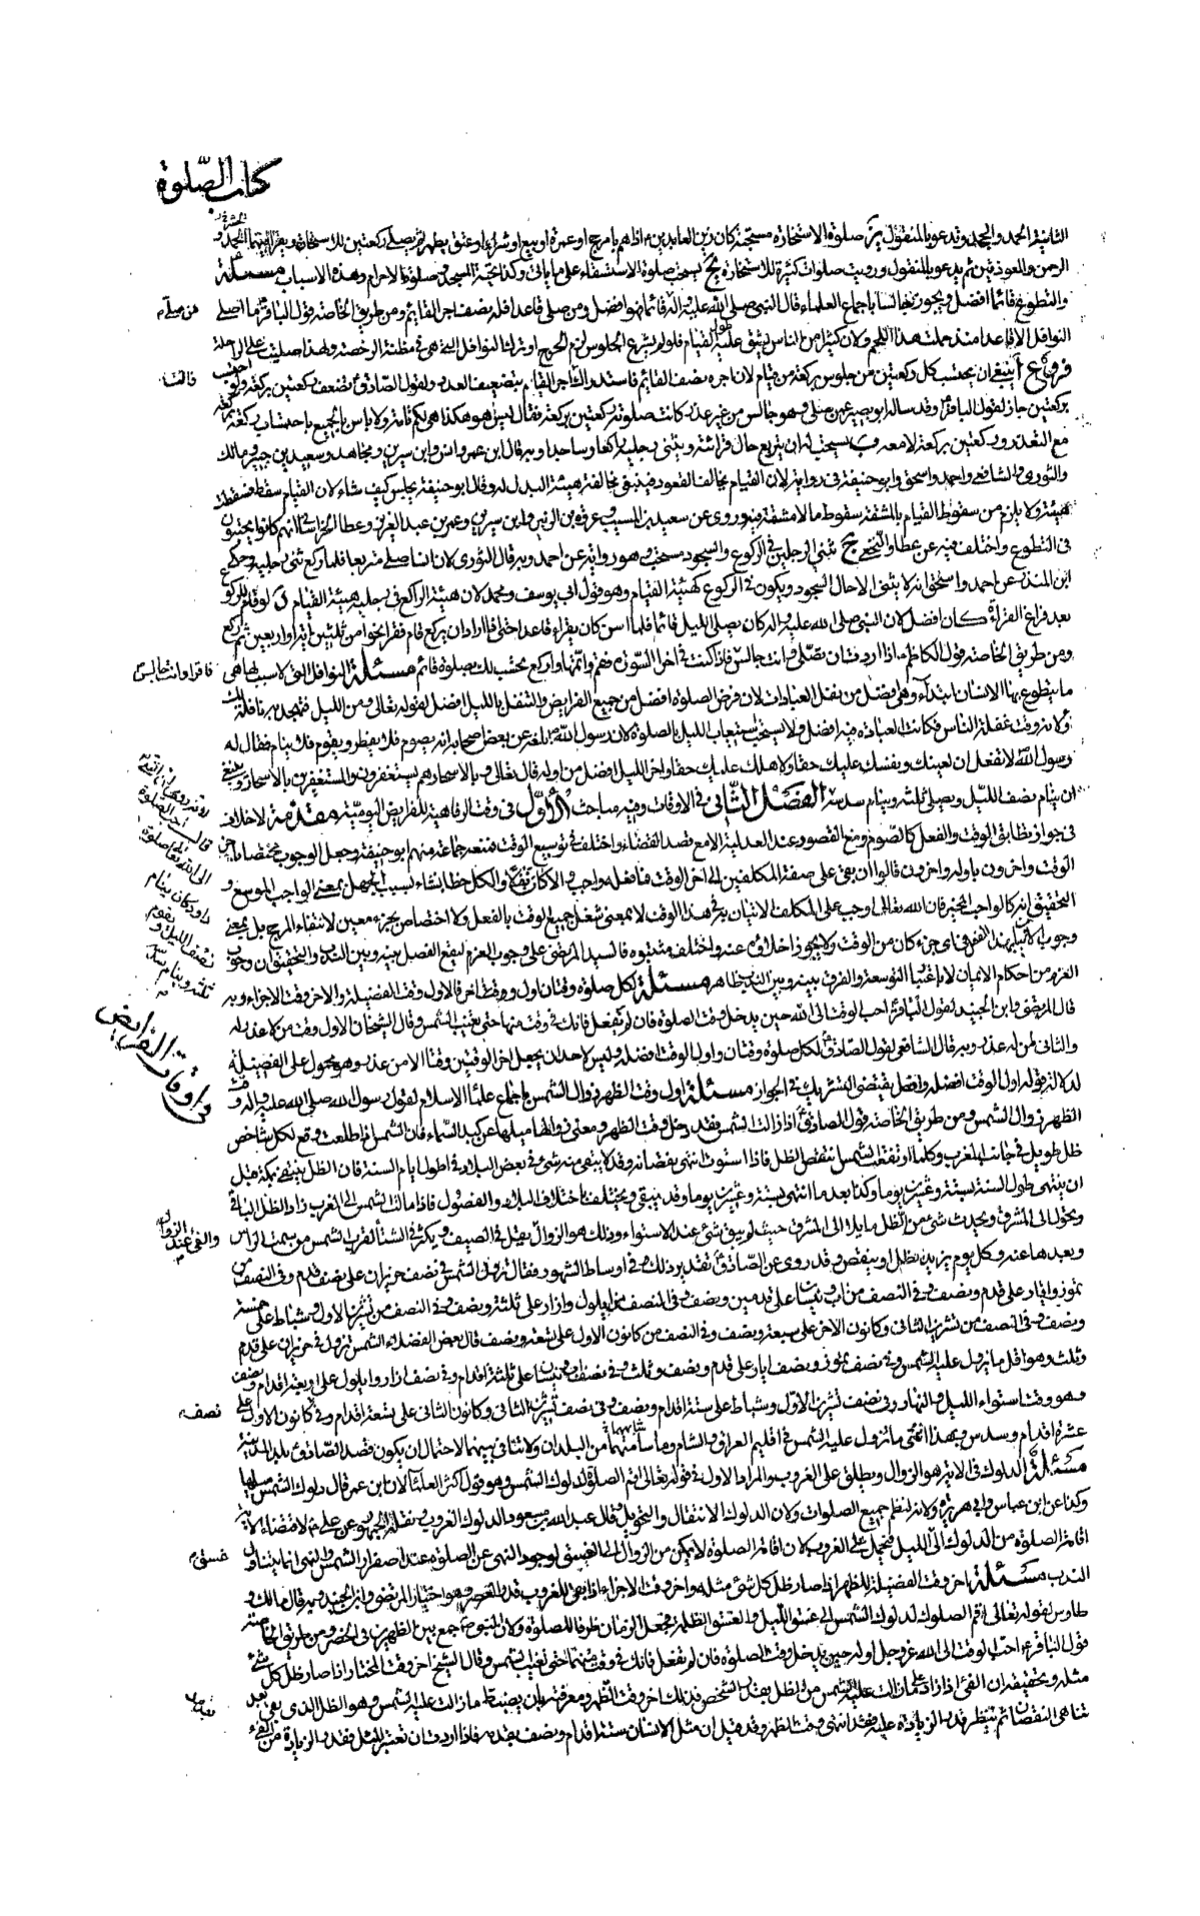 كتاب الصلوة
الثانية الحمد والجحد وتدعو بالمنقول صلوة الاستخارة مستحبة كان زين العابدين اذا هم بامر حج او عمرة او بيع او شراء او عتق يطهر ثم يصلى ركعتين للاستخارة ويقرأ فيهما الحشر و
الرحمن والمعوذتين ثم يدعو بالمنقول ورويت صلوات كثيرة للاستخارة يج يستحب صلوة الاستسقاء على ما ياتى وكذا تحية المسجد وصلوة الاحرام وهذه الاسباب مسئلة
والتطوع قائما افضل ويجوز جالسا باجماع العلماء قال النبى صلى الله عليه واله من صلى قائما فهو افضل ومن صلى قاعدا فله نصف اجر القائم ومن طريق الخاصة قول الباقر ما اصلى
النوافل الا قاعدا منذ حملت هذا اللحم ولان كثيرا من الناس يشق عليه طول القيام فلو لم يشرع الجلوس لزم الحرج او ترك النوافل
فروع ا ينبغى ان يحتسب كل ركعتين من جلوس بركعة من قيام لان اجره نصف القائم فاستدراك اجر القائم بتضعيف العدد ولقول الصادق تضعف ركعتين بركعة ولو احتسب
بركعتين جاز لقول الباقر وقد ساله ابو بصير عمن صلى وهو جالس من غير عذر كانت صلوته ركعتين بركعة فقال ليس هو هكذا هى لكم تامة ولا باس بالجميع
مع التعذر وركعتين بركعة لا معه ب يستحب له ان يتربع حال قرائته ويثنى رجليه راكعا وساجدا وبه قال ابن عمر وانس وابن سيرين ومجاهد وسعيد بن جبير ومالك
والثورى والشافعى واحمد واسحق وابو حنيفة فى رواية لان القيام يخالف القعود فينبغى مخالفة هيئة البدل له وقال ابو حنيفة يجلس كيف شاء لان القيام سقط فسقطت
هيئته ولا يلزم من سقوط القيام بالمشقة سقوط ما لا مشقة فيه وروى عن سعيد بن المسيب وعروة بن الزبير وابن سيرين وعمر بن عبد العزيز وعطا الخراسانى انهم كانوا يحتبون
فى التطوع واختلف فيه عن عطا والنخعى ج ثنى الرجلين فى الركوع والسجود مستحب وهو رواية عن احمد وبه قال الثورى لان انسا صلى متربعا فلما ركع ثنى رجليه وحكى
ابن المنذر عن احمد واسحق انه لا يثنى الا حال السجود ويكون فى الركوع كهيئة القيام وهو قول ابى يوسف ومحمد لان هيئة الراكع فى رجليه هيئة القيام د لو قام للركوع
بعد فراغ القراءة كان افضل لان النبى صلى الله عليه واله كان يصلى الليل قائما فلما اسن كان يقرأ قاعدا حتى اذا اراد ان يركع قام فقرأ نحوا من ثلثين اية او اربعين ثم ركع
ومن طريق الخاصة قول الكاظم اذا اردت ان تصلى وانت جالس فاذا كنت فى اخر السورة فقم واتمها واركع تحتسب لك بصلوة قائم مسئلة النوافل التى لا سبب لها هى
ما يتطوع بها الانسان ابتداء وهى افضل من نفل العبادات لان فرض الصلوة افضل من جميع الفرايض والتنفل بالليل افضل لقوله تعالى ومن الليل فتهجد به نافلة لك
ولانه وقت غفلة الناس فكانت العبادة فيه افضل ولا يستحب استيعاب الليل بالصلوة لان رسول الله بلغه عن بعض صحابه انه يصوم فلا يفطر ويقوم فلا ينام فقال له
رسول الله لا تفعل ان لعينك ونفسك عليك حقا ولاهلك عليك حقا واخر الليل افضل من اوله قال تعالى وبالاسحار هم يستغفرون والمستغفرين بالاسحار وينبغى
ان ينام نصف الليل ويصلى ثلثه وينام سدسه الفصل الثانى فى الاوقات وفيه مباحث الاول فى وقت الرفاهية للفرايض اليومية مقدمة لا خلاف
فى جواز تطابق الوقت والفعل كالصوم ومنع القصور عند العدلية الا مع قصد القضاء واختلف فى توسيع الوقت فمنعه جماعة منهم ابو حنيفة وجعل الوجوب مختصا باخر
الوقت واخرون باوله واخرون قالوا ان بقى على صفة المكلفين الى اخر الوقت فما فعله واجب والا كان نفلا والكل خطا نشاء بسبب الجهل بمعنى الواجب الموسع و
التحقيق انه كالواجب المخير فان الله تعالى اوجب على المكلف الاتيان به فى هذا الوقت لا بمعنى شغل جميع الوقت بالفعل ولا اختصاص بجزء معين لانتفاء المرجح بل بمعنى
وجوب الفعل فى اى جزء كان من الوقت ولا يجوز اخلاؤه عنه واختلف مثبتوه فالسيد المرتضى على وجوب العزم ليقع الفصل بينه وبين الندب والتحقيق ان وجوب
العزم من احكام الايمان لا باعتبار التوسعة والفرق بينه وبين الندب ظاهر مسئلة لكل صلوة وقتان اول واخر فالاول وقت الفضيلة والاخر وقت الاجزاء وبه
قال المرتضى وابن الجنيد لقول الباقر احب الوقت الى الله حين يدخل وقت الصلوة فان لم تفعل فانك فى وقت منها حتى تغيب الشمس وقال الشيخان الاول وقت من لا عذر له
والثانى لمن له عذر وبه قال الشافعى لقول الصادق لكل صلوة وقتان واول الوقت افضله وليس لاحد ان يجعل اخر الوقتين وقتا الا من عذر وهو محمول على الفضيلة
لدلالة قوله اول الوقت افضله وافعل يقتضى التشريك فى الجواز مسئلة اول وقت الظهر زوال الشمس باجماع علماء الاسلام لقول رسول الله صلى الله عليه واله وقت
الظهر زوال الشمس ومن طريق الخاصة قول الصادق اذا زالت الشمس فقد دخل وقت الظهر ومعنى زوالها ميلها عن كبد السماء فان الشمس اذا طلعت وقع لكل شاخص
ظل طويل فى جانب المغرب وكلما ارتفعت الشمس انتقص الظل فاذا استوت انتهى نقصانه وقد لا يبقى منه شئ فى بعض البلاد فى اطول ايام السنة فان الظل ينتفى بمكة قبل
ان ينتهى طول السنة بستة وعشرين يوما وكذا بعد ما انتهى بستة وعشرين يوما وقد يبقى ويختلف باختلاف البلاد والفصول فاذا مالت الشمس الى المغرب زاد الظل الباقى
وتحول الى المشرق ويحدث شئ من الظل مايلا الى المشرق حيث لم يبق شئ عند الاستواء وذلك هو الزوال يقل فى الصيف ويكثر فى الشتاء لقرب الشمس من سمت الراس
وبعدها عنه وكل يوم يزيد الظل او ينقص وقد روى عن الصادق تقدير ذلك فى اوساط الشهور فقال تزول الشمس فى نصف حزيران على نصف قدم وفى النصف من
تموز وايار على قدم ونصف وفى النصف من اب ونيسان على قدمين ونصف وفى النصف من ايلول واذار على ثلثة ونصف وفى النصف من تشرين الاول وشباط على خمسة
ونصف وفى النصف من تشرين الثانى وكانون الاخر على سبعة ونصف وفى النصف من كانون الاول على تسعة ونصف قال بعض الفضلاء الشمس تزول فى حزيران على قدم
وثلث وهو اقل ما تزول عليه الشمس وفى نصف تموز ونصف ايار على قدم ونصف وثلث وفى نصف اب ونيسان على ثلثة اقدام وفى نصف اذار وايلول على اربعة اقدام ونصف
وهو وقت استواء الليل والنهار وفى نصف تشرين الاول وشباط على ستة اقدام ونصف وفى نصف تشرين الثانى وكانون الثانى على تسعة اقدام وفى كانون الاول على
عشرة اقدام وسدس وهذا انتهى ما تزول عليه الشمس فى اقليم العراق والشام وما سامتهما من البلدان ولا تنافى بينهما لاحتمال ان يكون قصد الصادق بلد المدينة
مسئلة الدلوك فى الاية هو الزوال ويطلق على الغروب والمراد الاول فى قوله تعالى اقم الصلوة لدلوك الشمس وهو قول اكثر العلماء لان ابن عمر قال دلوك الشمس ميلها
وكذا عن ابن عباس وابى هريرة ولانه لنظم جميع الصلوات ولان الدلوك الانتقال والتحويل وقال عبد الله بن مسعود الدلوك الغروب ونقله الجمهور عن على لاقتضاء الاية
اقامة الصلوة من الدلوك الى الليل فتحمل على الغروب لان اقامة الصلوة لا يمكن من الزوال الى الغسق لوجود النهى عن الصلوة عند اصفرار الشمس والنهى انما يتناول
الندب مسئلة اخر وقت الفضيلة للظهر اذا صار ظل كل شئ مثله واخر وقت الاجزاء اذا بقى للغروب قدر العصر وهو اختيار المرتضى وابن الجنيد وبه قال مالك و
طاوس لقوله تعالى اقم الصلوة لدلوك الشمس الى غسق الليل والغسق الظلمة فجعل الزمان ظرفا للصلوة ولان النبى جمع بين الظهرين فى الحضر ومن طريق الخاصة
قول الباقر احب الوقت الى الله عز وجل اوله حين يدخل وقت الصلوة فان لم تفعل فانك فى وقت منهما حتى تغيب الشمس وقال الشيخ اخر وقت المختار اذا صار ظل كل شئ
مثله وتحقيقه ان الفئ اذا زاد على ما زالت عليه الشمس من الظل بقدر الشخص فذلك اخر وقت الظهر ومعرفته بان يضبط ما زالت عليه الشمس وهو الظل الذى بقى بعد
تناهى النقصان ثم ينظر قدر الزيادة عليه فقد انتهى وقت الظهر وقد قيل ان مثل الانسان ستة اقدام ونصف بقدمه فاذا اردت ان تعتبر المثل فقدر الزيادة من الفئ
من صلى
فاقرا وانت جالس
فى اوقات الفرايض
نصف
غسق